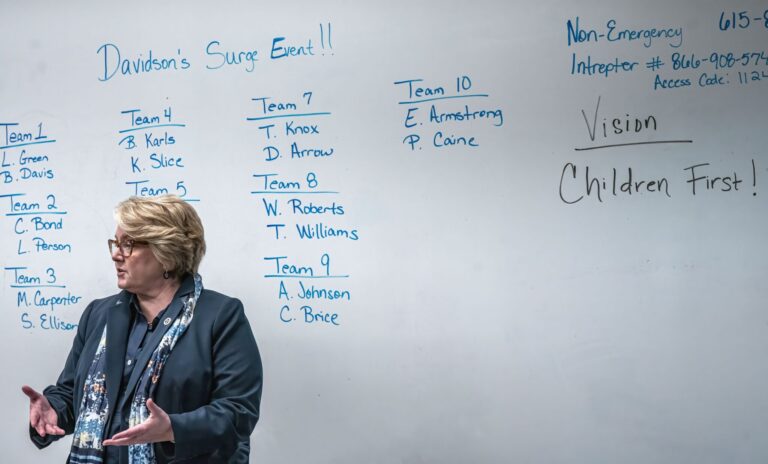 Davidson's Surge Event!!
Team 1
L. Green
B. Davis
Team 2
C. Bond
L. Person
Team 3
M. Carpenter
S. Ellison
Team 4
B. Karls
K. Slice
Team 5
Team 7
T. Knox
D. Arrow
Team 8
W. Roberts
T. Williams
Team 9
A. Johnson
C. Brice
Team 10
E. Armstrong
P. Caine
Non-Emergency 615-8
Intrepter # 866-908-574
Access Code: 1124
Vision
Children First!